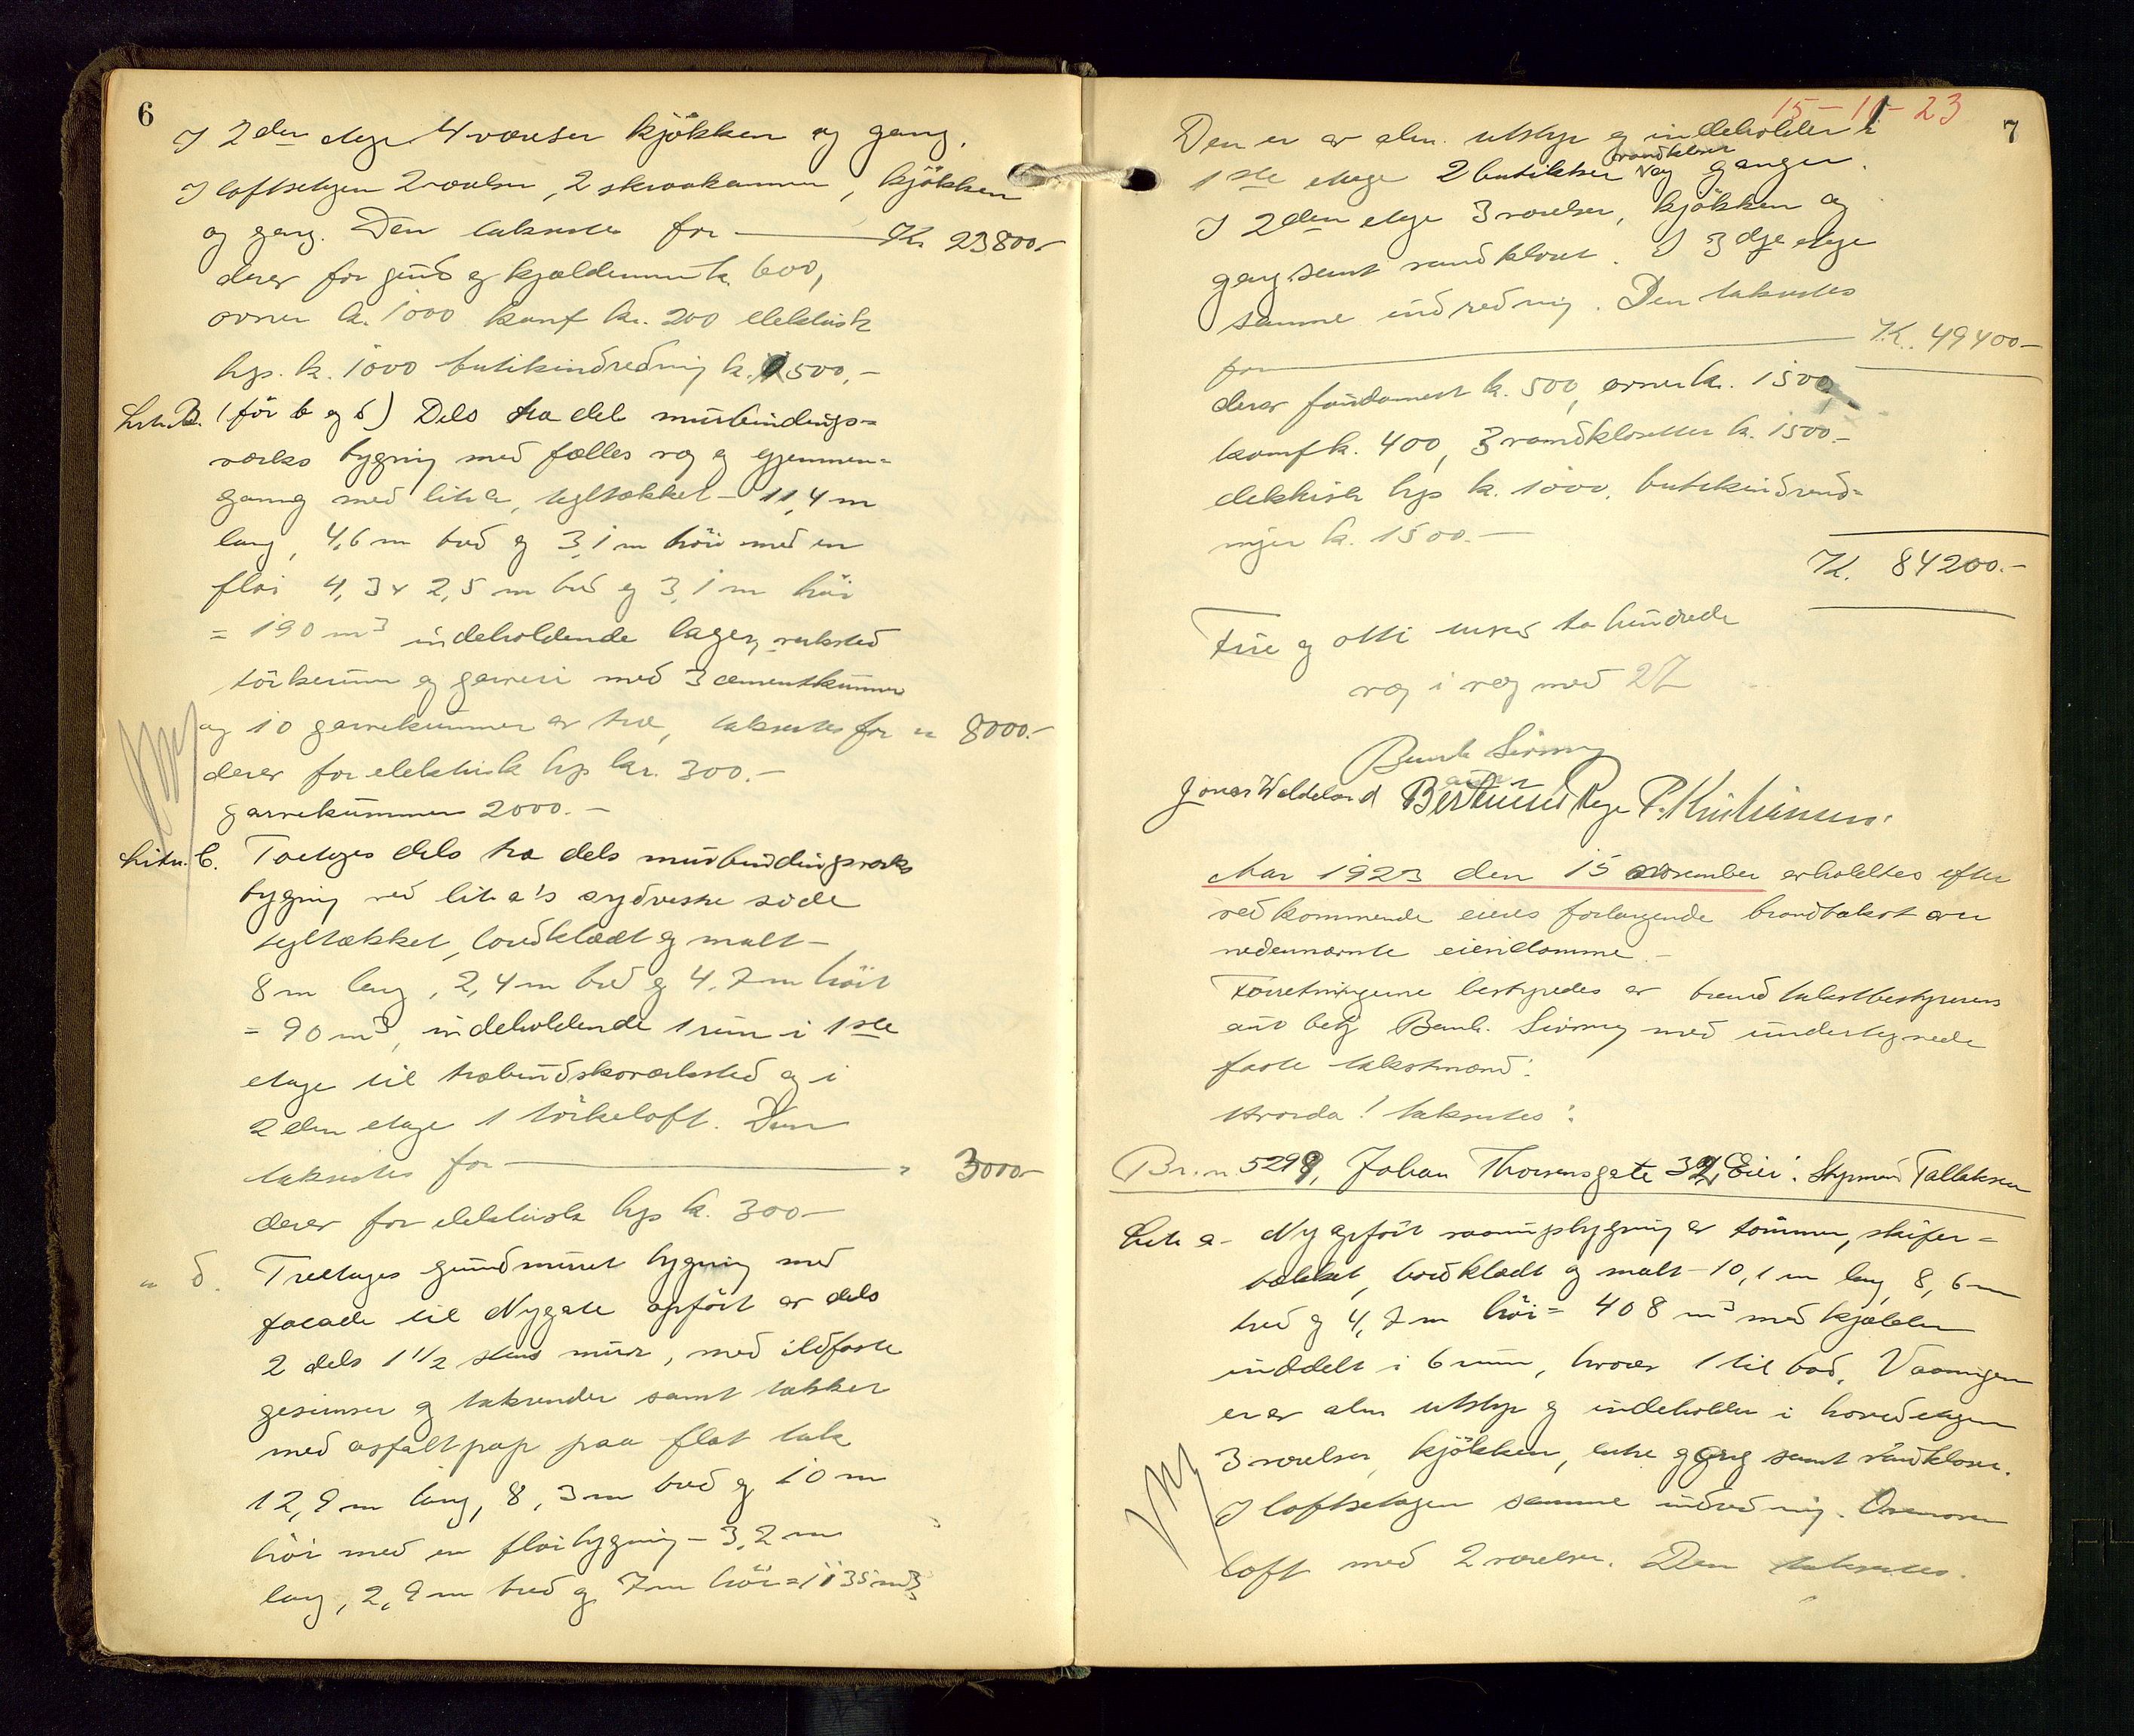 6
I 2den etage 4 værelser kjökken og gang.
I loftsetagen 2 værelser, 2 skraakammer, kjökken
og gang. Den taksertes for — Kr 23800.-
derav for grund og kjældermur k. 600,
ovner k. 1000 komf kr. 200 elektrisk
lys. k. 1000 butikindredning k. 500,-
Litr. B. (för b og b) Dels træ dels murbindings=
værks bygning med fælles væg og gjennem=
gang med litr a, tegltækket - 11,4 m
lang, 4,6 m bred og 3,1 m höi med en
flöi 4,3 x 2,5 m bred og 3,1 m höi
= 190 m3 indeholdende lager, verksted
törkerum og garveri med 3 cementkummer
og 10 garvekummer av træ, taksertes for " 8000.-
derav for elektrisk lys kr. 300.-
garvekummer 2000.-
Litr. C. Toetages dels træ dels murbindingsværks
bygning ved litr a's sydvestre side
tegltækket, bordklædt og malt -
8 m lang, 2,4 m bred og 4,7 m höit
= 90 m3, indeholdende 1 rum i 1ste
etage til træbundskoverksted og i
2den etage 1 törkeloft. Den
taksertes for — " 3000.-
derav for elektrisk lys k. 300.-
" d. Treetages grundmuret bygning med
facade til Nygate opfört av dels
2 dels 1 1/2 stens mur, med ildfaste
gesimser og takrender samt tækket
med asfaltpap paa flat tak
12,9 m lang, 8,3 m bred og 10 m
höi med en flöibygning - 3,2 m
lang, 2,9 m bred og 7 m höi = 1135 m3
15-11-23
7
Den er av alm. utstyr og indeholder i
1ste etage 2 butikker vandkloset og ganger.
I 2den etage 3 værelser, kjökken og
gang samt vandkloset. I 3dje etage
samme indredning. Den taksertes
for — K. 49400-
derav fundament k. 500, ovner kr. 1500,
komf k. 400, 3 vandklosetter k. 1500.-
elektrisk lys k. 1000, butikindred=
ninger k. 1500.-
K. 84200.-
Fire og otti tusen to hundrede
væg i væg med 27
Jonas Waldeland P. Kristiansen.
Aar 1923 den 15 november avholdtes efter
vedkommende eieres forlangende brandtakst over
nedennævnte eiendomme.-
Forretningerne bestyredes av brandtakstbestyrerens
aut. betj med undertegnede
faste takstmænd:
Hvorda! taksertes:
Br. n. 5299, Johan Thorsensgate 32, Eier: Styrmand Tallaksen
Litr a- Ny opfört vaaningsbygning av tömmer, skifer=
tækket, bordklædt og malt - 10,1 m lang, 8,6 m
bred og 4,7 m höi = 408 m3 med kjælder
inddelt i 6 rum, hvorav 1 til bad. Vaaningen
er av alm utstyr og indeholder i hovedetagen
3 værelser, kjökken, entre og gang samt vandkloset.
I loftsetagen samme indredning. Ovenover
loft med 2 værelser. Den taksertes.